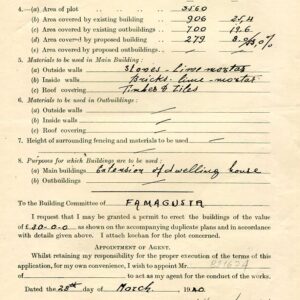 4.—(a) Area of plot 3560
(b) Area covered by existing building 906 25,4
(c) Area covered by existing outbuildings 700 19,6
(d) Area covered by proposed building 279
(e) Area covered by proposed outbuildings —
5. Materials to be used in Main Building :
(a) Outside walls Stones - lime mortar
(b) Inside walls Bricks - lime - mortar
(c) Roof covering Timber & Tiles
6. Materials to be used in Outbuildings :
(a) Outside walls
(b) Inside walls
(c) Roof covering
7. Height of surrounding fencing and materials to be used
8. Purposes for which Buildings are to be used :
(a) Main buildings Extension of dwelling house
(b) Outbuildings —
To the Building Committee of FAMAGUSTA
I request that I may be granted a permit to erect the buildings of the value
of £ 30-0-0 as shown on the accompanying duplicate plans and in accordance
with details given above. I attach kochan for the plot concerned.
APPOINTMENT OF AGENT.
Whilst retaining my responsibility for the proper execution of the terms of this
application, for my own convenience, I wish to appoint Mr.
to act as my agent for the conduct of the works.
Dated the 28th day of March, 1940.